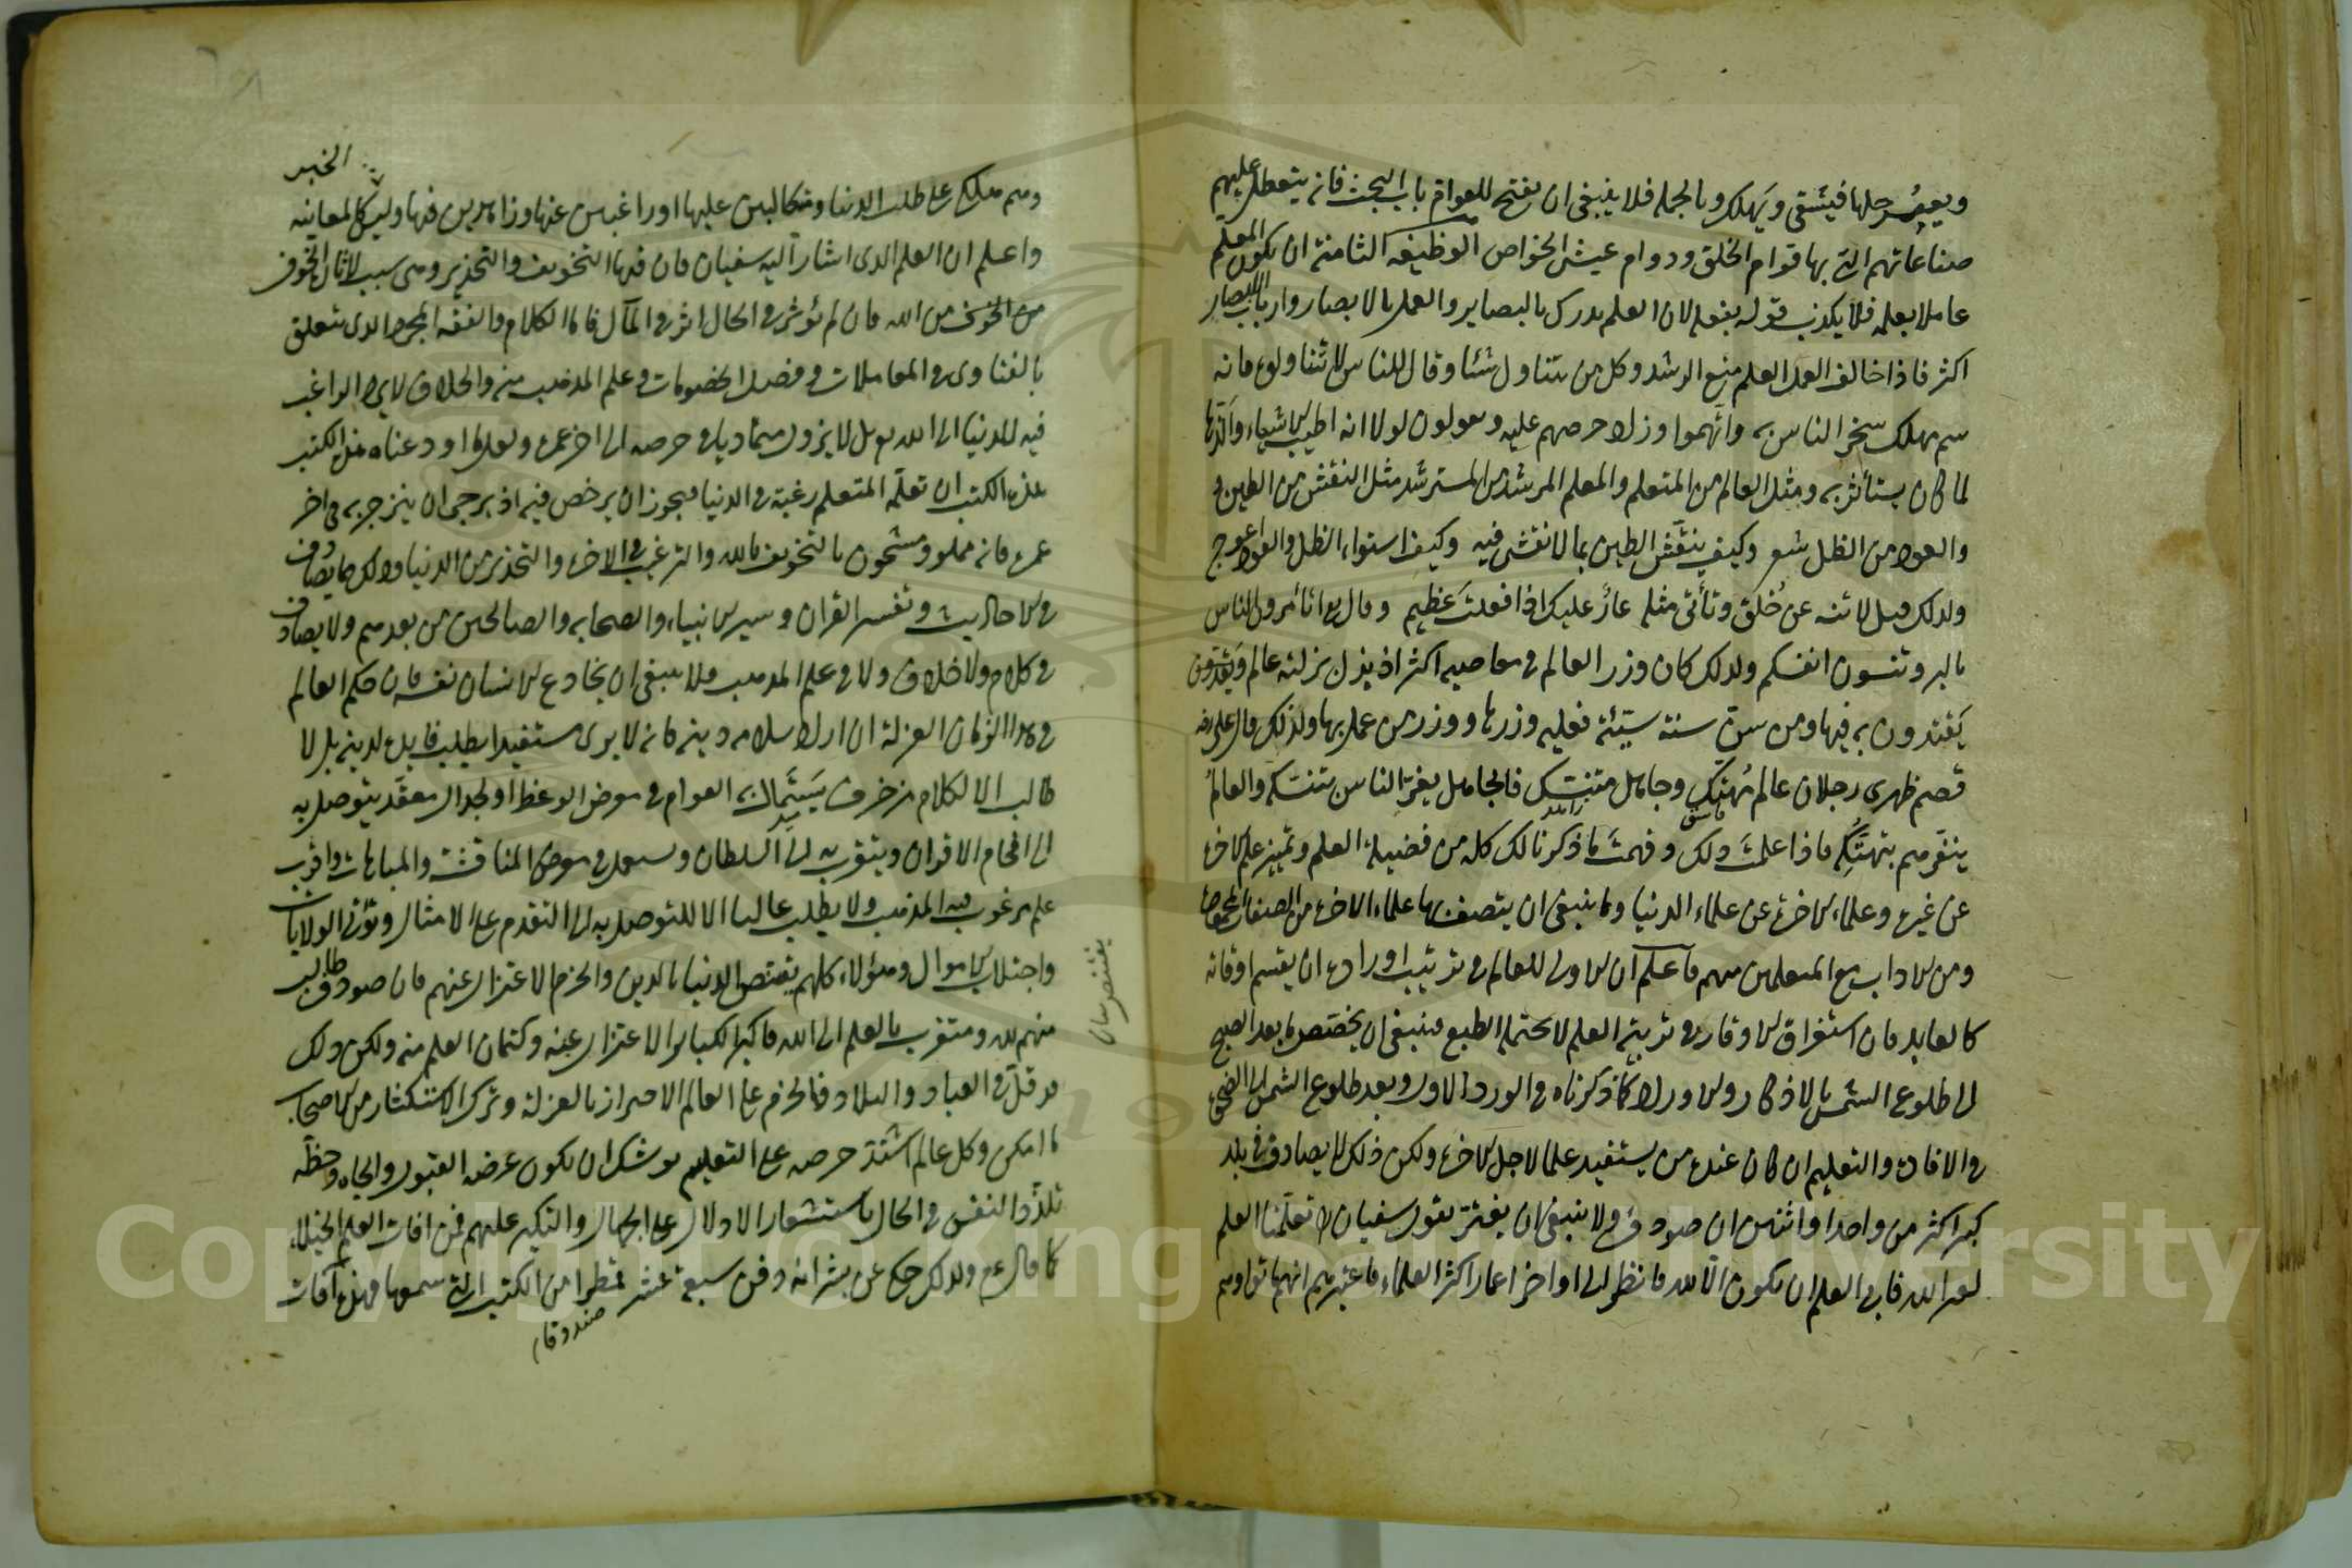 ويعسر حلها فيشقى ويهلك وبالجملة فلا ينبغي ان يفتح للعوام باب البحث فانه يتعطل عليهم
صناعاتهم التي بها قوام الخلق ودوام عيش الخواص الوظيفة الثامنة ان يكون المعلم
عاملا بعلمه فلا يكذب قوله بفعله لان العلم يدرك بالبصاير والعمل بالابصار وارباب الابصار
اكثر فاذا خالف العمل العلم منع الرشد وكل من يتناول شئا وقال للناس لا تتناولوه فانه
سم مهلك سخر الناس به واتهموا وزاد حرصهم عليه ويقولون لولا انه اطيب الاشياء وألذها
لما كان يستأثر به ومثل العالم من المتعلم والمعلم المرشد من المسترشد مثل النقش من الطين و
والعود من الظل شعر وكيف ينقش الطين بما لا نقش فيه وكيف استواء الظل والعود اعوج
ولذلك قيل لا تنه عن خُلق وتأتي مثله عارٌ عليك اذا فعلتَ عظيم وقال تعالى اتأمرون الناس
بالبر وتنسون انفسكم ولذلك كان وزر العالم في معاصيه اكثر اذ يزل بزلته عالم
يَقتدون به فيها ومن سن سنة سيّئة فعليه وزرها ووزر من عمل بها ولذلك قال علي رضه
قصم ظهري رجلان عالم مُتهتك وجاهل متنسك فالجاهل يغرّ الناس بتنسّكه والعالمُ
ينفّرهم بتهتّكه فاذا علمتَ ذلك وفهمتَ ما ذكرنا لك كله من فضيلة العلم وتميز علم الاخرة
عن غيره وعلماء الاخرة عن علماء الدنيا وما ينبغي ان يتصف بها علماء الاخرة من الصفات المحمودة
ومن الاداب مع المتعلمين منهم فاعلم ان الاولى للعالم في ترتيب اوراده ان يقسم اوقاته
كالعابد فان استغراق الاوقات في تربية العلم لا يحتمله الطبع فينبغي ان يختص ما بعد الصبح
الى طلوع الشمس بالاذكار والاوراد كما ذكرناه في الورد الاول وبعد طلوع الشمس الى الضحى
في الافادة والتعليم ان كان عنده من يستفيد علما لاجل الاخرة ولكن ذلك لا يصادف في بلد
كبير اكثر من واحد او اثنين ان صودف ولا ينبغي ان يغترّ بقول سفيان تعلّمنا العلم
لغير الله فابى العلم ان يكون الّا لله فانظر الى اواخر اعمار اكثر العلماء فاعتبرهم انهم ماتوا وهم
الخبر
وهم هلكى على طلب الدنيا ومتكالبين عليها او راغبين عنها وزاهدين فيها وليس كالمعاينة
واعلم ان العلم الذي اشار اليه سفيان فان فيها التخويف والتحذير وهي سبب لاثارة الخوف
من الخوف من الله فان لم يؤثر في الحال اثر في المآل فاما الكلام والفقه المجرد الذي يتعلق
بالفتاوى في المعاملات وفصل الخصومات وعلم المذهب منه والخلاف لا يرد الراغب
فيه للدنيا الى الله بل لا يزول متماديا في حرصه الى اخر عمره ولعل ما اودعناه هذا الكتب
هذا الكتب ان تعلّمه المتعلم رغبة في الدنيا فيجوز ان يرخص فيه اذ يرجى ان ينزجر به في اخر
عمره فانه مملو ومشحون بالتخويف بالله والترغيب في الاخرة والتحذير من الدنيا وذلك مما يصادف
في الاحاديث وتفسير القران وسير الانبياء والصحابه والصالحين من بعدهم ولا يصادف
في كلام ولا خلاف ولا في علم المذهب فلا ينبغي ان يخادع الانسان نفسه فان حكم العالم
في هذا الزمان العزلة ان اراد سلامه دينه فانه لا يرى مستفيدا يطلب فايدة لدينه بل لا
طالب الا لكلام مزخرف يستمال به العوام في معرض الوعظ او لجدال معقّد يتوصل به
الى افحام الاقران ويتقرب به الى السلطان ويستعمل في معرض المنافسة والمباهات واقرب
علم مرغوب فيه المذهب ولا يطلب غالبا الا للتوصل به الى التقدم على الامثال وتولّي الولايات
واجتلاب الاموال وهؤلاء كلهم يقتنص الدنيا بالدين والحزم الاعتزال عنهم فان صودف طالب
منهم لله ومتقرب بالعلم الى الله فاكبر الكبائر الاعتزال عنه وكتمان العلم منه ولكن ذلك
قد قلّ في العباد والبلاد فالحزم على العالم الاحتراز بالعزلة وترك الاستكثار من الاصحاب
ما امكن وكل عالم اشتدّ حرصه على التعليم يوشك ان يكون غرضه القبول والجاه وحظّه
تلذّذ النفس في الحال باستشعار الادلال على الجهال والتكبر عليهم فمن افات العلم الخيلاء
كما قال عم ولذلك حكي عن بشر انه دفن سبعة عشر قمطرا من الكتب التي سمعها فهذه آفات
صندوقا